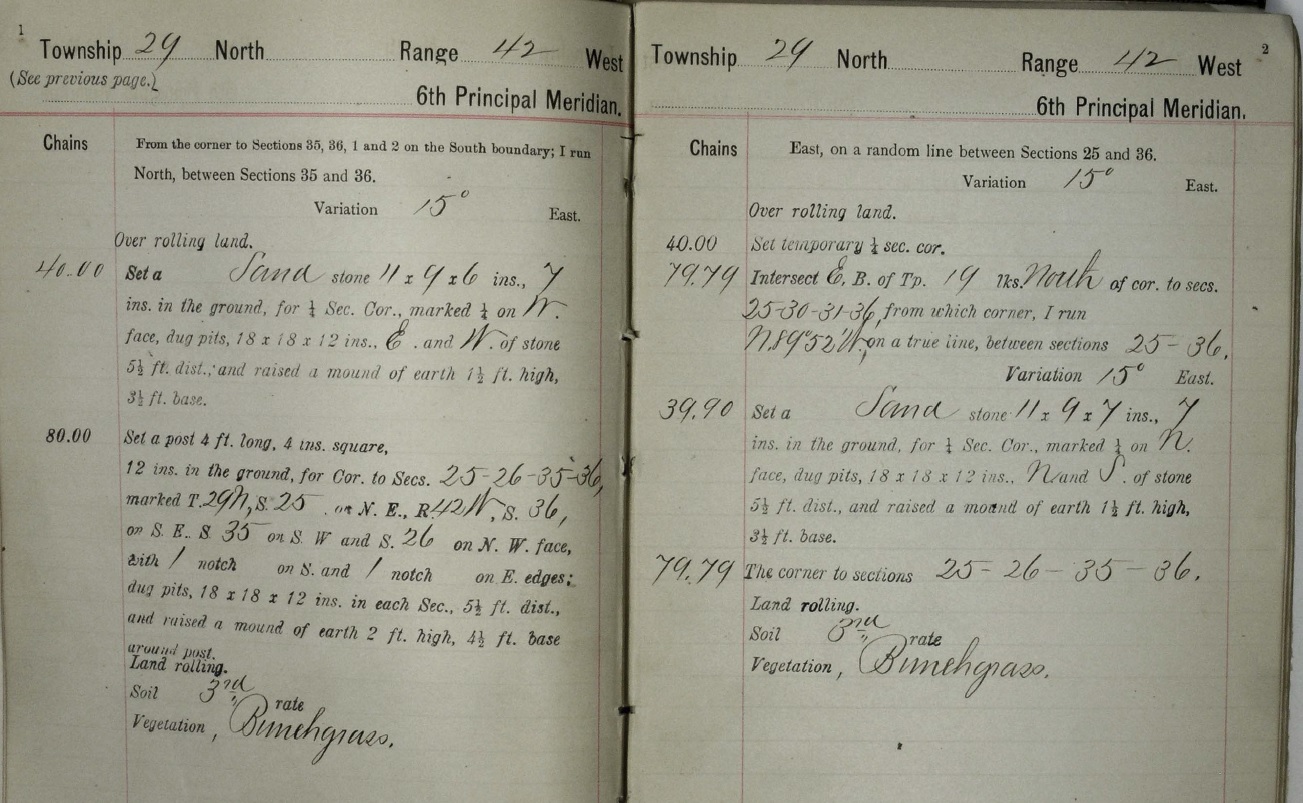 1
Township 29 North Range 42 West
(See previous page.)
6th Principal Meridian.
Chains
From the corner to Sections 35, 36, 1 and 2 on the South boundary; I run
North, between Sections 35 and 36.
Variation 15° East.
Over rolling land.
40.00 Set a Sand stone 11 x 9 x 6 ins., 7
ins. in the ground, for ¼ Sec. Cor., marked ¼ on W.
face, dug pits, 18 x 18 x 12 ins., E. and W. of stone
5½ ft. dist.; and raised a mound of earth 1½ ft. high,
3½ ft. base.
80.00 Set a post 4 ft. long, 4 ins. square,
12 ins. in the ground, for Cor. to Secs. 25-26-35-36,
marked T. 29 N, S. 25 on N. E., R 42 W, S. 36,
on S. E. S. 35 on S. W and S. 26 on N. W. face,
with 1 notch on S. and 1 notch on E. edges;
dug pits, 18 x 18 x 12 ins. in each Sec., 5½ ft. dist.,
and raised a mound of earth 2 ft. high, 4½ ft. base
around post.
Land rolling.
Soil 3rd rate
Vegetation, Bunchgrass.
2
Township 29 North Range 42 West
6th Principal Meridian.
Chains
East, on a random line between Sections 25 and 36.
Variation 15° East.
Over rolling land.
40.00 Set temporary ¼ sec. cor.
79.79 Intersect E. B. of Tp. 19 lks. North of cor. to secs.
25-30-31-36, from which corner, I run
N 89° 52' W, on a true line, between sections 25-36.
Variation 15° East.
39.90 Set a Sand stone 11 x 9 x 7 ins., 7
ins. in the ground, for ¼ Sec. Cor., marked ¼ on N.
face, dug pits, 18 x 18 x 12 ins., N and S. of stone
5½ ft. dist., and raised a mound of earth 1½ ft. high,
3½ ft. base.
79.79 The corner to sections 25-26-35-36.
Land rolling.
Soil 3rd rate
Vegetation, Bunchgrass.